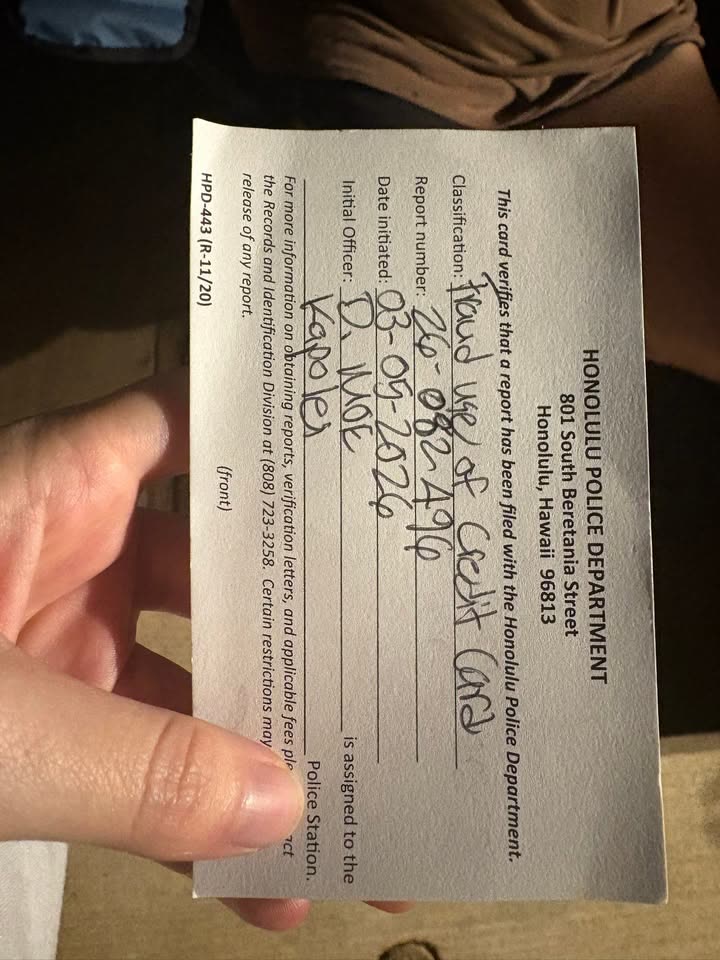 HONOLULU POLICE DEPARTMENT
801 South Beretania Street
Honolulu, Hawaii 96813
This card verifies that a report has been filed with the Honolulu Police Department.
Classification: Fraud use of Credit Card
Report number: 26-082496
Date initiated: 03-05-2026
Initial Officer: D. MOE is assigned to the
Kapolei Police Station.
For more information on obtaining reports, verification letters, and applicable fees
the Records and Identification Division at (808) 723-3258. Certain restrictions may
release of any report.
(front)
HPD-443 (R-11/20)